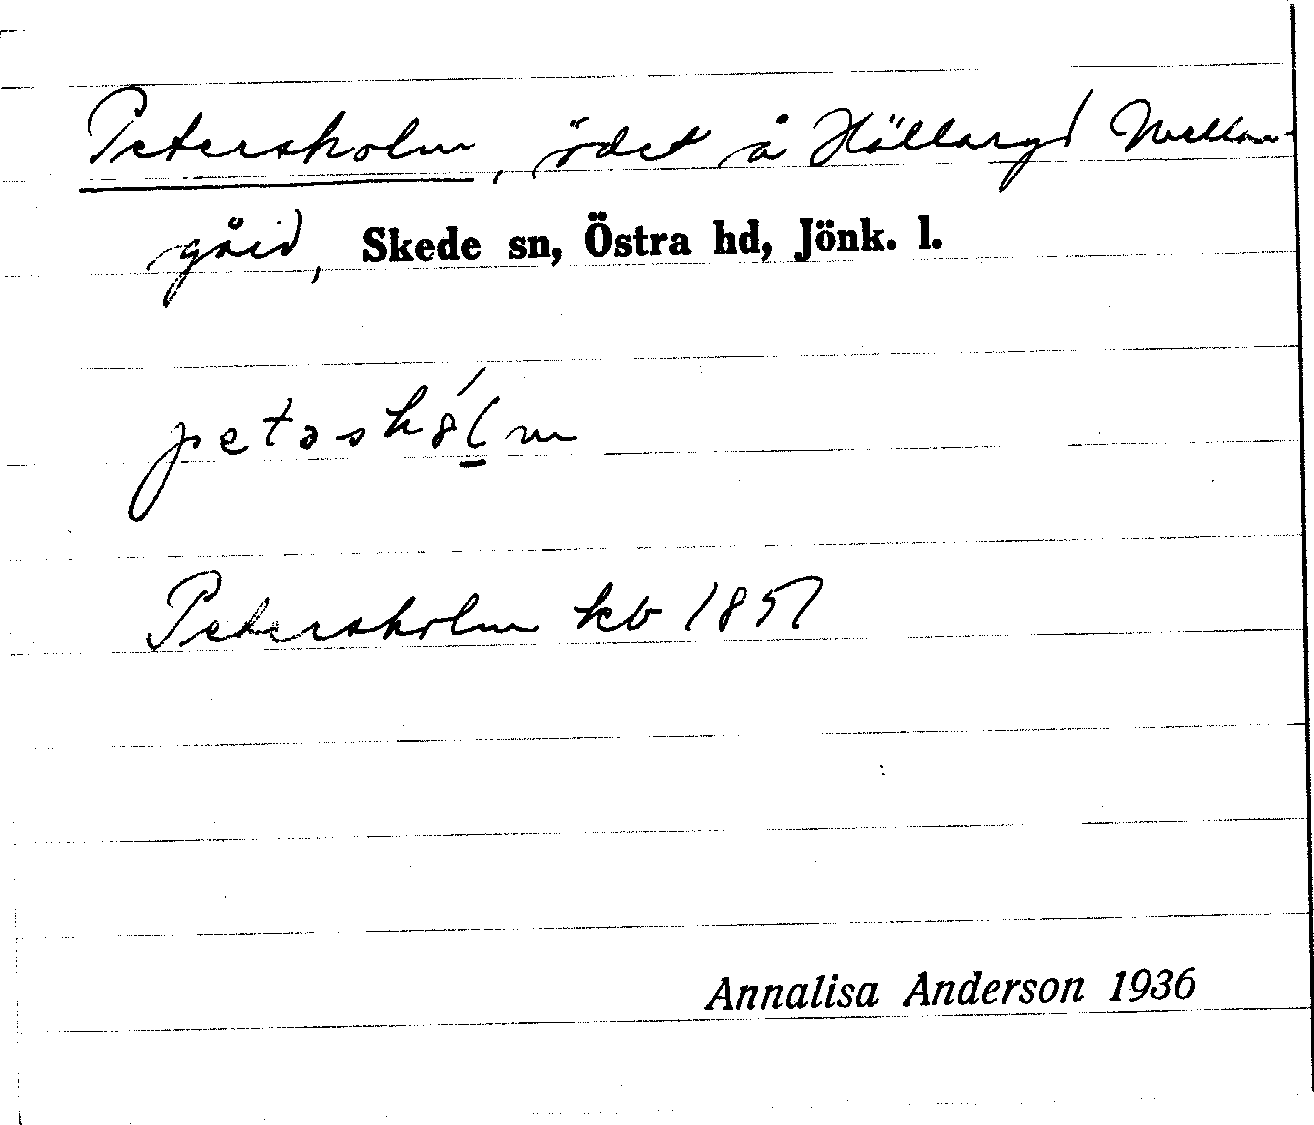 Petersholm, ödet å Hällaryd Mellan-
gård, Skede sn, Östra hd, Jönk. l.
petəshó̤lm
Petersholm kb 1857
Annalisa Anderson 1936